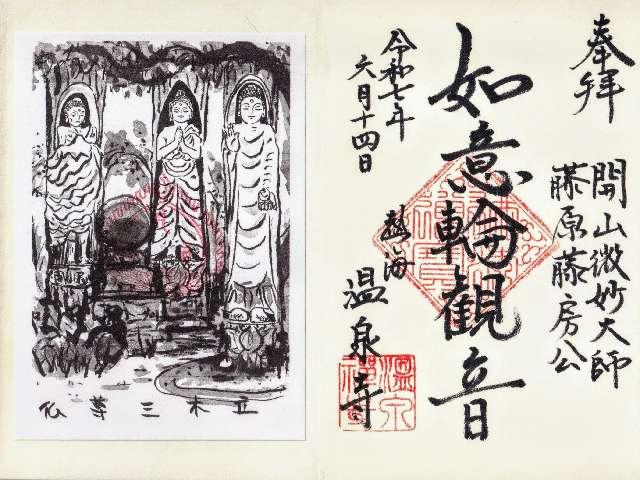 奉拝
開山微妙大師
藤原藤房公
如意輪観音
令和七年
六月十四日
熱海
温泉寺
立木三尊仏